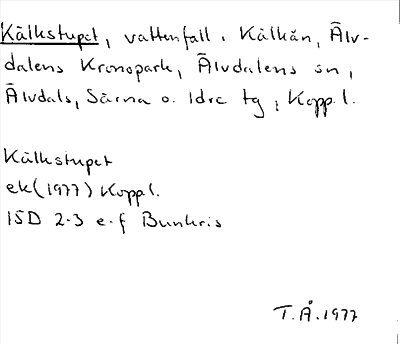 Kälkstupet, vattenfall i Kälkån, Älv-
dalens Kronopark, Älvdalens sn,
Älvdals, Särna o. Idre tg, Kopp.l.
Kälkstupet
ek(1977) Kopp.l.
15D 2-3 e-f Bunkris
T.Å.1977